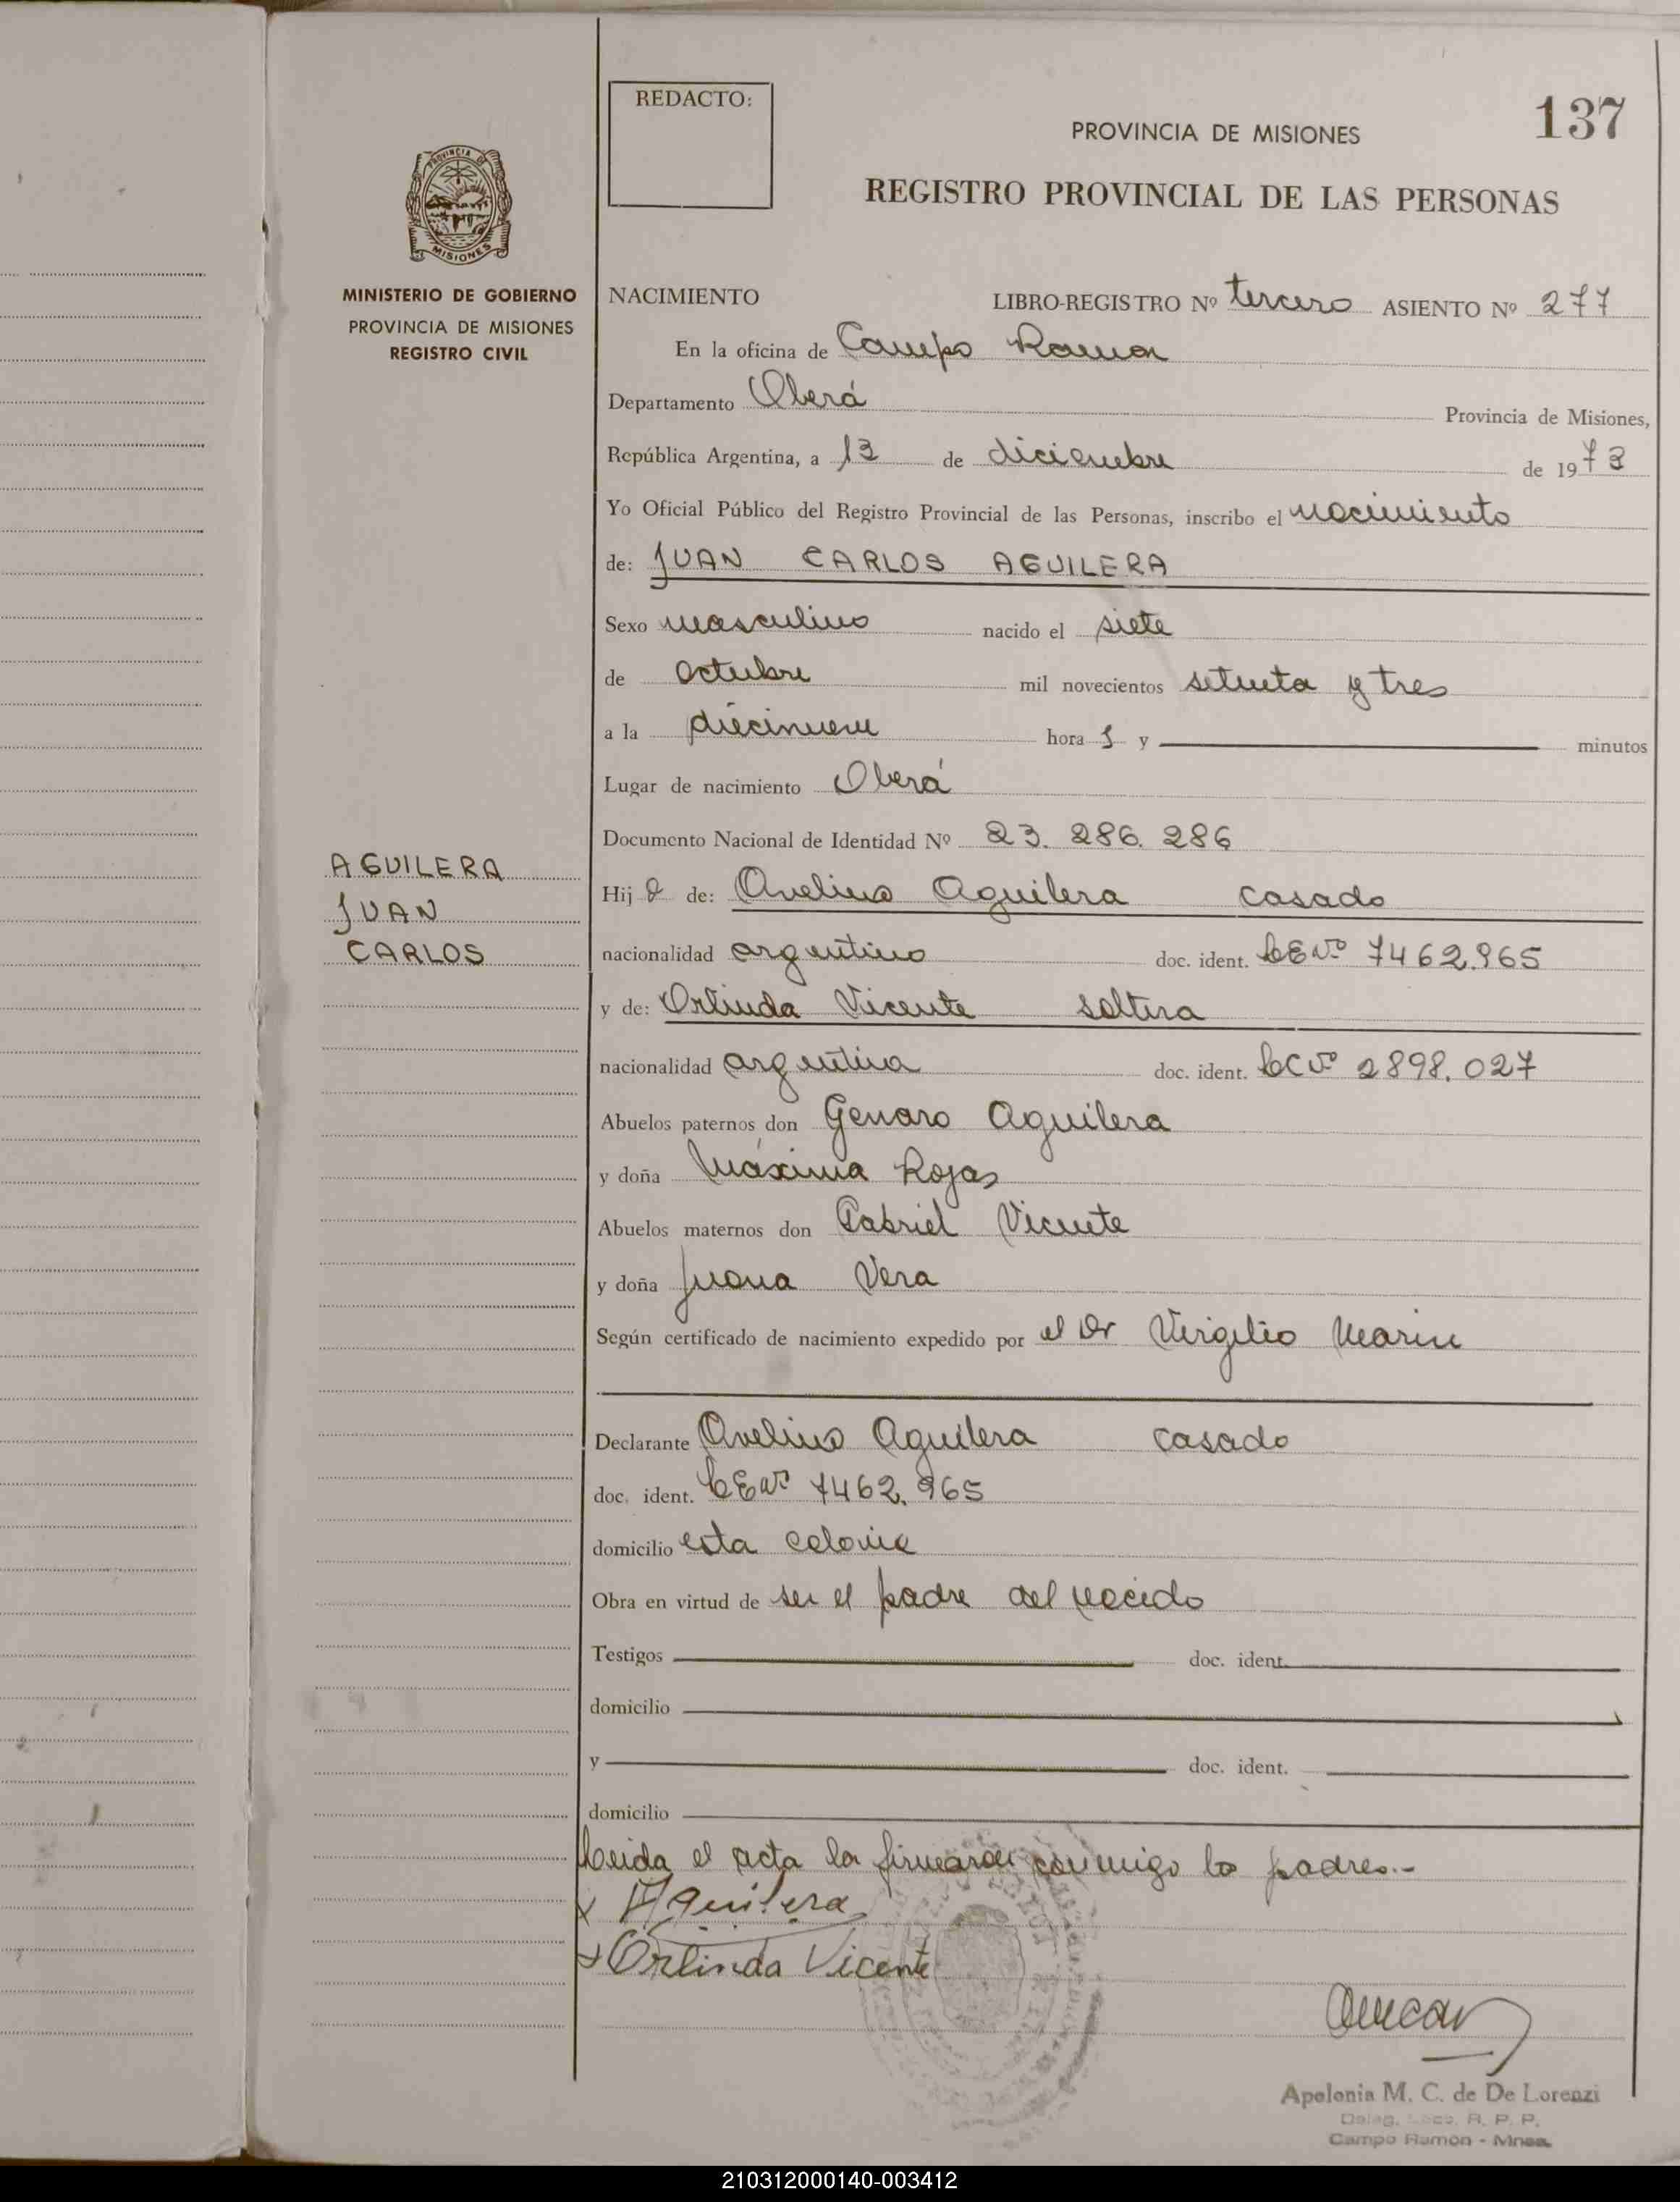 REDACTO:
137
PROVINCIA DE MISIONES
REGISTRO PROVINCIAL DE LAS PERSONAS
PROVINCIA DE
MISIONES
MINISTERIO DE GOBIERNO
PROVINCIA DE MISIONES
REGISTRO CIVIL
NACIMIENTO LIBRO-REGISTRO Nº tercero ASIENTO Nº 277
En la oficina de Campo Ramon
Departamento Oberá Provincia de Misiones,
República Argentina, a 13 de diciembre de 1973
Yo Oficial Público del Registro Provincial de las Personas, inscribo el nacimiento
de: JUAN CARLOS AGUILERA
Sexo masculino nacido el siete
de octubre mil novecientos setenta y tres
a la diecinueve hora s y minutos
Lugar de nacimiento Oberá
Documento Nacional de Identidad Nº 23.286.286
AGUILERA
JUAN
CARLOS
Hij o de: Avelino Aguilera casado
nacionalidad argentino doc. ident. LE Nº 7462.965
y de: Orlinda Vicente soltera
nacionalidad argentina doc. ident. LC Nº 2898.027
Abuelos paternos don Genaro Aguilera
y doña Máxima Rojas
Abuelos maternos don Gabriel Vicente
y doña Juana Vera
Según certificado de nacimiento expedido por el Dr Virgilio Marin
Declarante Avelino Aguilera casado
doc. ident. LE Nº 7462.965
domicilio esta colonia
Obra en virtud de ser el padre del nacido
Testigos doc. ident.
domicilio
y doc. ident.
domicilio
Leida el acta la firmaron conmigo los padres.-
x Aguilera
x Orlinda Vicente
Apolonia M. C. de De Lorenzi
Deleg. R. P. P.
Campo Ramón - Mnes.
210312000140-003412